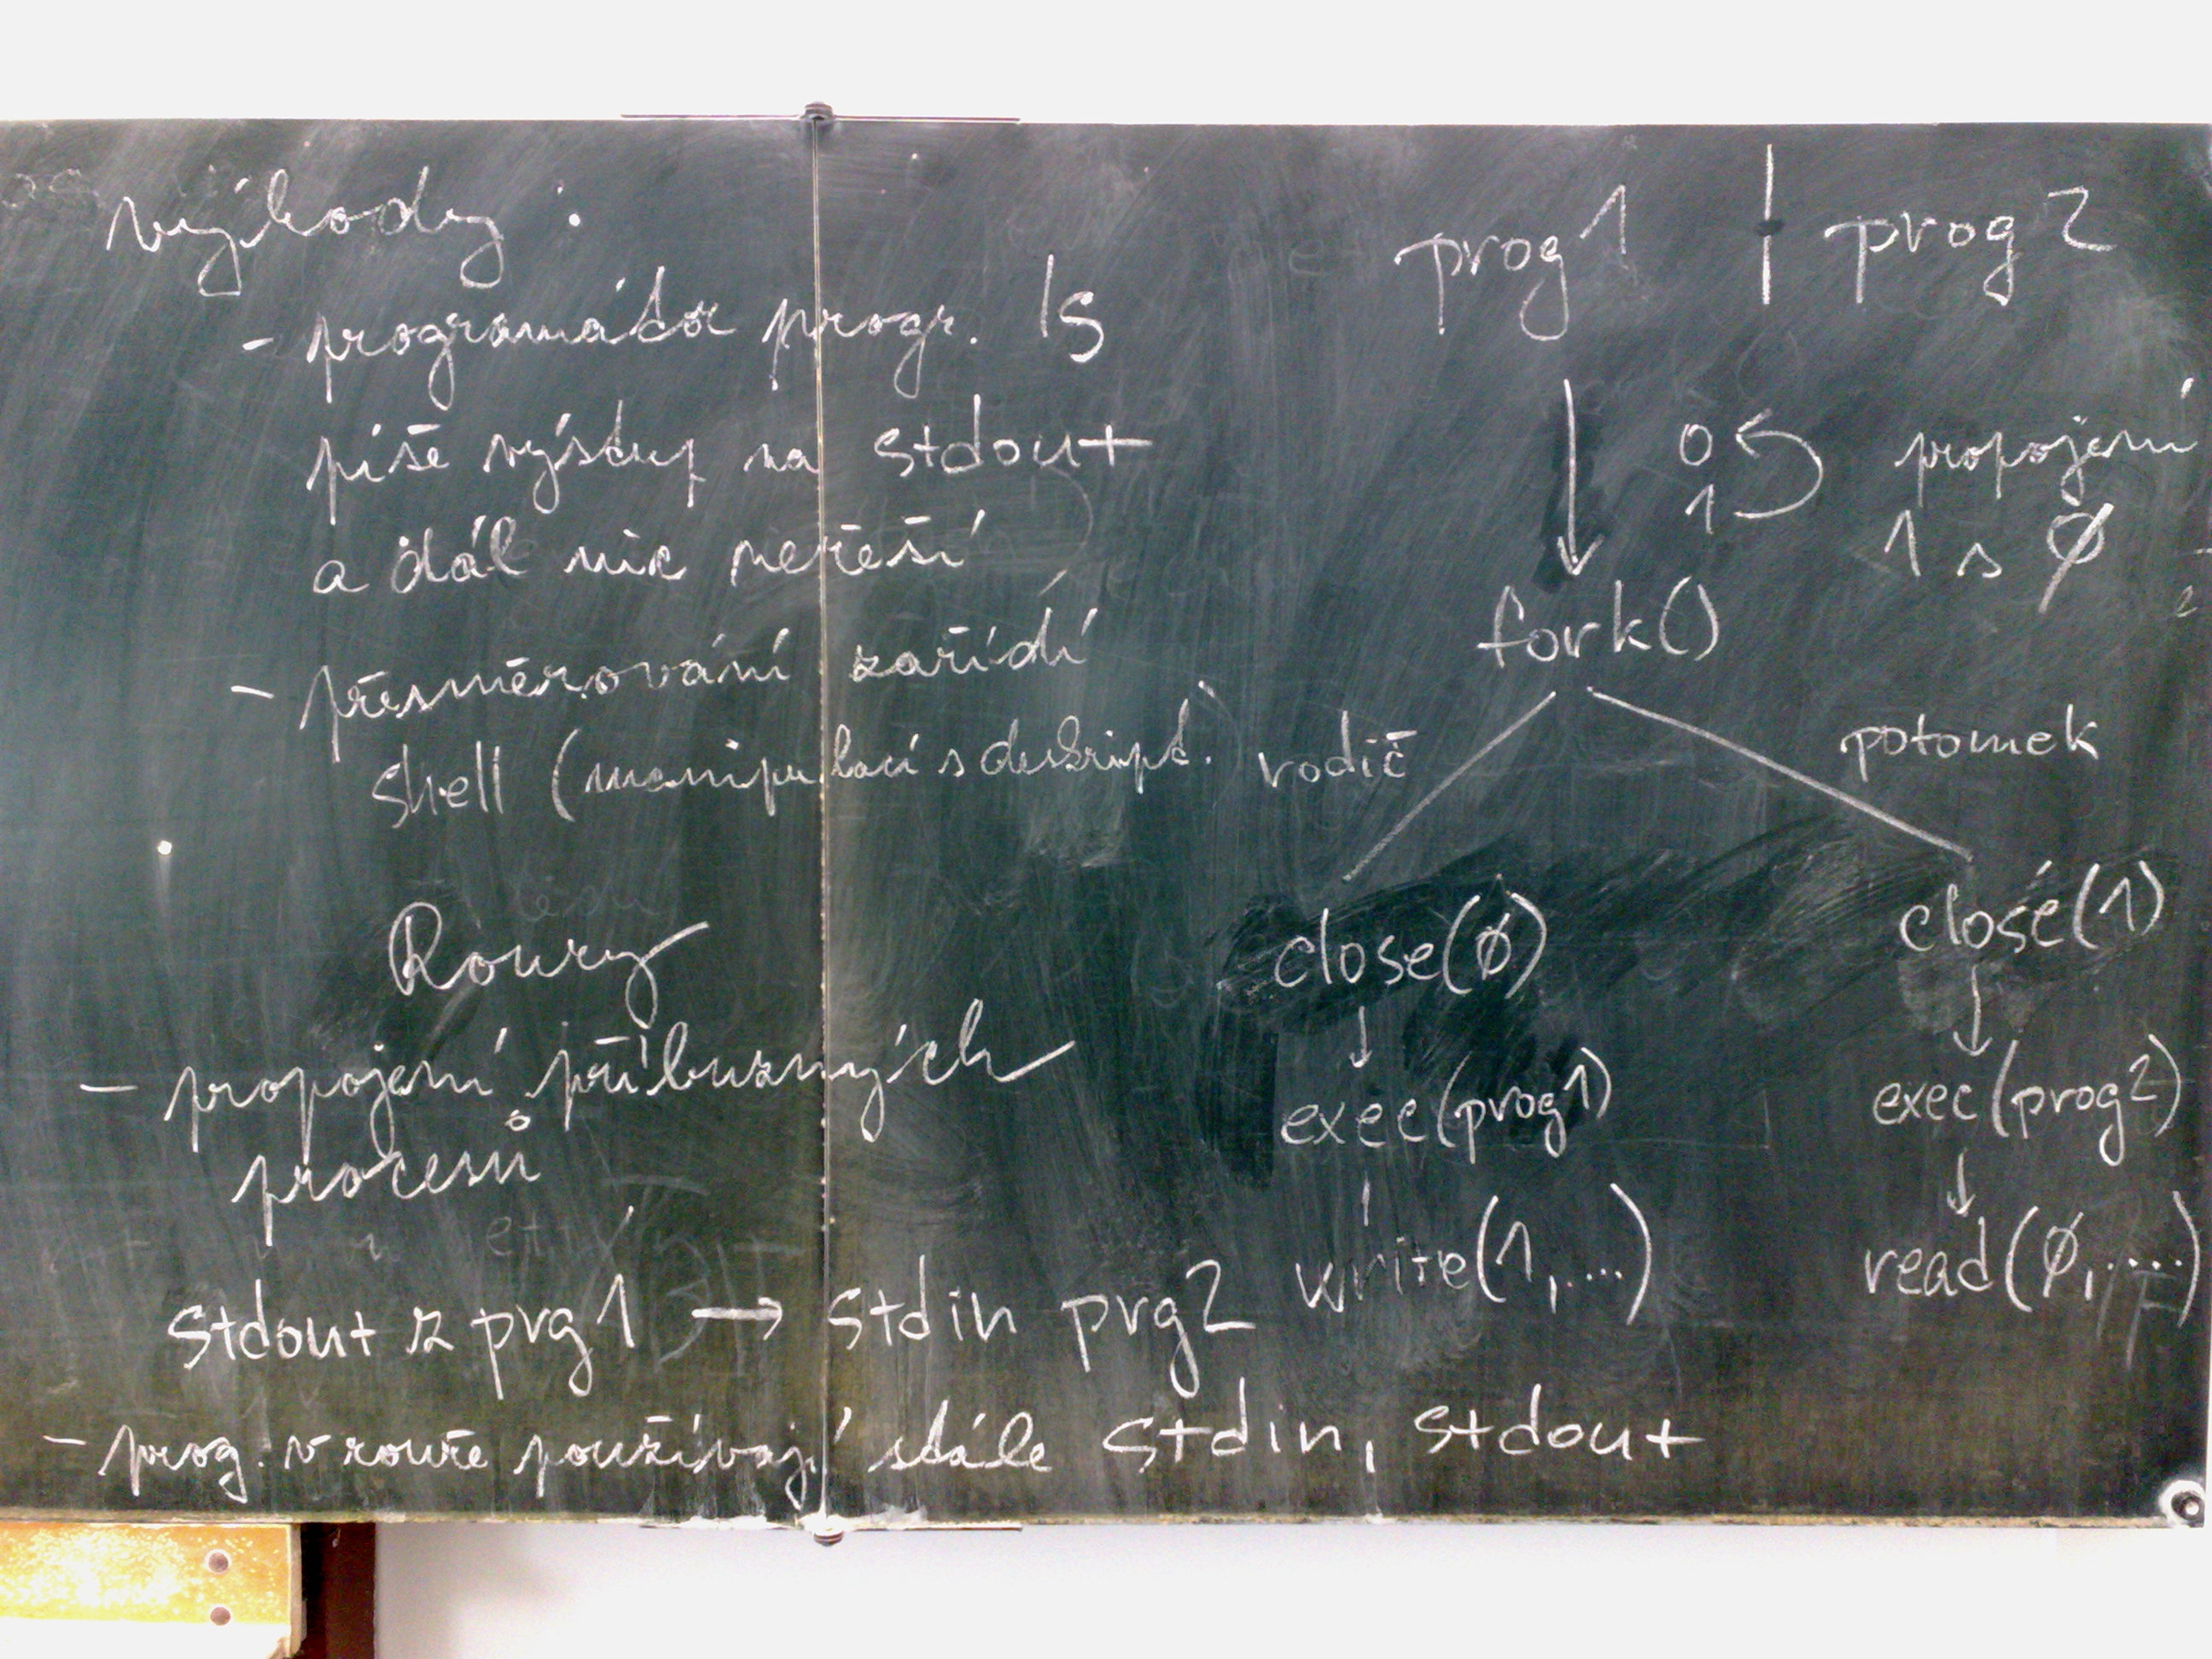 výhody :
- programátor progr. ls
píše výstup na stdout
a dál nic neřeší
- přesměrování zařídí
shell (manipulací s deskript.)
Roury
- propojení příbuzných
procesů
stdout z prg1 → stdin prg2
- prog. v rouře používají stále stdin, stdout
prog1 | prog2
0
1
propojení
1 s Ø
fork()
rodič
potomek
close(Ø)
↓
exec(prog1)
write(1,....)
close(1)
↓
exec(prog2)
↓
read(Ø,.....)